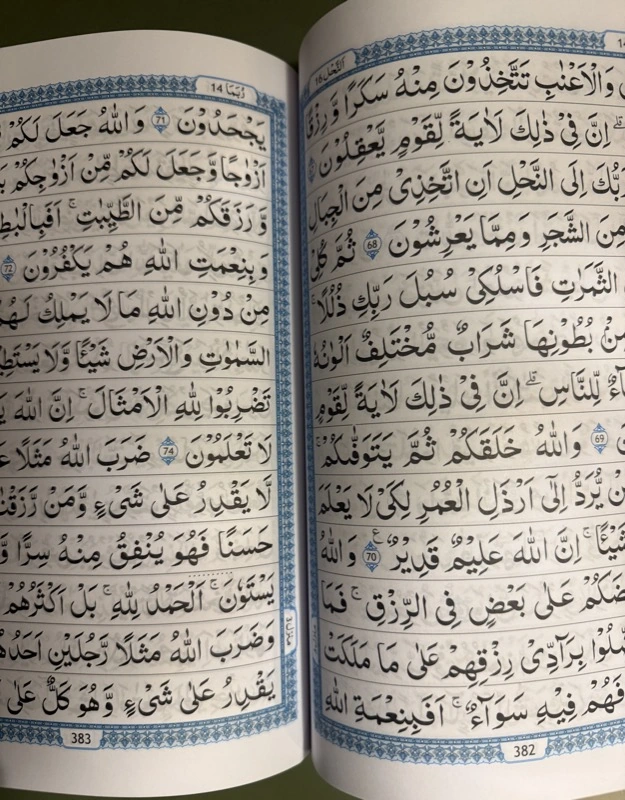 اَلنَّحْل 16
14
وَالْاَعْنٰبِ تَتَّخِذُوْنَ مِنْهُ سَكَرًا وَّ رِزْقًا
اِنَّ فِیْ ذٰلِكَ لَاٰیَةً لِّقَوْمٍ یَّعْقِلُوْنَ
رَبُّكَ اِلَى النَّحْلِ اَنِ اتَّخِذِیْ مِنَ الْجِبَالِ
مِنَ الشَّجَرِ وَ مِمَّا یَعْرِشُوْنَ 68 ثُمَّ كُلِیْ
الثَّمَرٰتِ فَاسْلُكِیْ سُبُلَ رَبِّكِ ذُلُلًا ؕ
مِنْۢ بُطُوْنِهَا شَرَابٌ مُّخْتَلِفٌ اَلْوَانُهٗ
لِّلنَّاسِ ؕ اِنَّ فِیْ ذٰلِكَ لَاٰیَةً لِّقَوْمٍ
69 وَ اللّٰهُ خَلَقَكُمْ ثُمَّ یَتَوَفّٰىكُمْ
یُّرَدُّ اِلٰۤى اَرْذَلِ الْعُمُرِ لِكَیْ لَا یَعْلَمَ
شَیْـًٔا ؕ اِنَّ اللّٰهَ عَلِیْمٌ قَدِیْرٌ 70 وَ اللّٰهُ
عَلٰى بَعْضٍ فِی الرِّزْقِ ۚ فَمَا
بِرَآدِّیْ رِزْقِهِمْ عَلٰى مَا مَلَكَتْ
فَهُمْ فِیْهِ سَوَآءٌ ؕ اَفَبِنِعْمَةِ اللّٰهِ
382
رُبَمَا 14
یَجْحَدُوْنَ 71 وَ اللّٰهُ جَعَلَ لَكُمْ
اَزْوَاجًا وَّ جَعَلَ لَكُمْ مِّنْ اَزْوَاجِكُمْ
وَّ رَزَقَكُمْ مِّنَ الطَّیِّبٰتِ ؕ اَفَبِالْبَاطِلِ
وَ بِنِعْمَتِ اللّٰهِ هُمْ یَكْفُرُوْنَ 72
مِنْ دُوْنِ اللّٰهِ مَا لَا یَمْلِكُ لَهُمْ
السَّمٰوٰتِ وَ الْاَرْضِ شَیْـًٔا وَّ لَا
تَضْرِبُوْا لِلّٰهِ الْاَمْثَالَ ؕ اِنَّ اللّٰهَ
لَا تَعْلَمُوْنَ 74 ضَرَبَ اللّٰهُ مَثَلًا
لَّا یَقْدِرُ عَلٰى شَیْءٍ وَّ مَنْ رَّزَقْنٰهُ
حَسَنًا فَهُوَ یُنْفِقُ مِنْهُ سِرًّا وَّ
یَسْتَوٗنَ ؕ اَلْحَمْدُ لِلّٰهِ ؕ بَلْ اَكْثَرُهُمْ
وَ ضَرَبَ اللّٰهُ مَثَلًا رَّجُلَیْنِ اَحَدُهُمَا
یَقْدِرُ عَلٰى شَیْءٍ وَّ هُوَ كَلٌّ عَلٰى
383